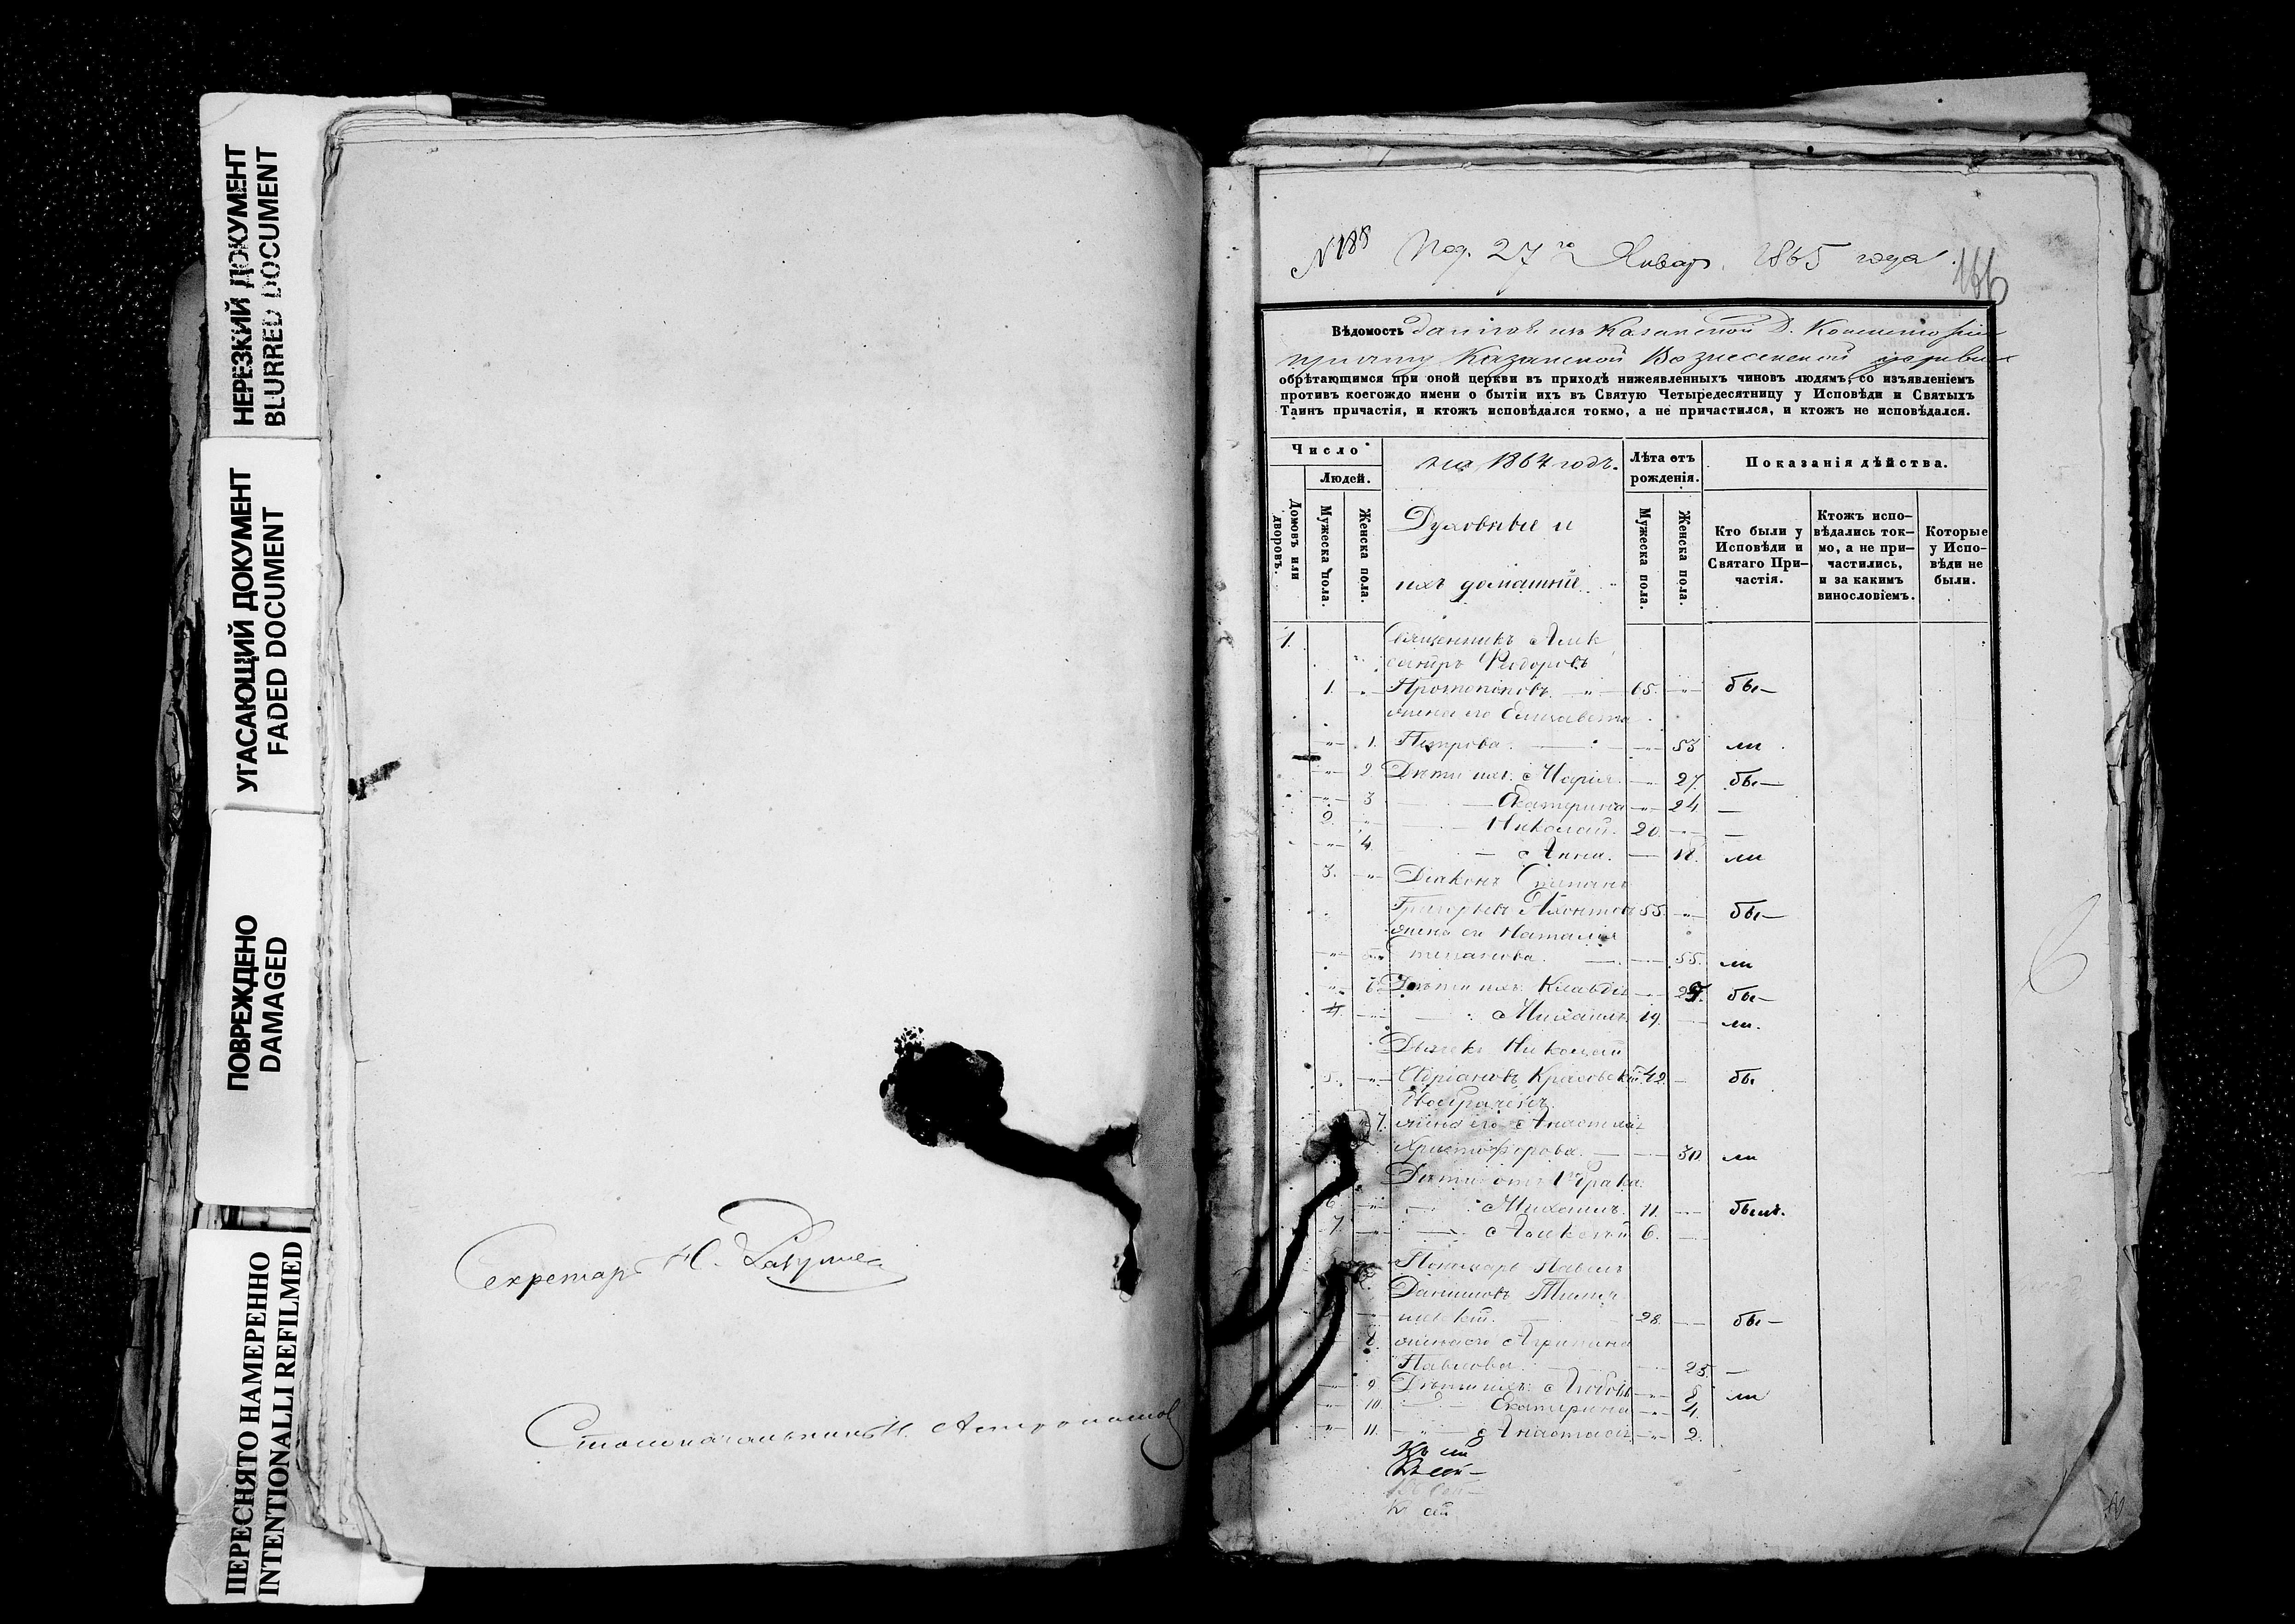 НЕРЕЗКИЙ ДОКУМЕНТ
BLURRED DOCUMENT
УГАСАЮЩИЙ ДОКУМЕНТ
FADED DOCUMENT
ПОВРЕЖДЕНО
DAMAGED
ПЕРЕСНЯТО НАМЕРЕННО
INTENTIONALLI REFILMED
Секретарь Н.
Столоначальникъ Н.
№188 Под. 27го Январ. 1865 года.
166
Вѣдомость данная изъ Казанской Д. Консисторіи
причту Казанской Вознесенской церкви
обрѣтающимся при оной церкви въ приходѣ нижеявленныхъ чиновъ людямъ, со изъявленіемъ
противъ коегождо имени о бытіи ихъ въ Святую Четыредесятницу у Исповѣди и Святыхъ
Таинъ причастія, и ктожъ исповѣдался токмо, а не причастился, и ктожъ не исповѣдался.
Число
Людей.
Домовъ или дворовъ.
Мужеска пола.
Женска пола.
на 1864 годъ.
Духовные и
ихъ домашніе
Лѣта отъ
рожденія.
Мужеска пола.
Женска пола.
Показанія дѣйства.
Кто были у
Исповѣди и
Святаго При-
частія.
Ктожъ испо-
вѣдались ток-
мо, а не при-
частились,
и за какимъ
винословіемъ.
Которые
у Испо-
вѣди не
были.
1. Священникъ Алек
сандръ Ѳедоровъ
1. Протопоповъ 65. бы—
жена его Елисавета
1. Петрова 53 ли
2 Дѣти ихъ: Марія 27. бы—
3 Екатерина 24 —
2. Николай. 20. —
4. Анна. 18. ли
3. Діаконъ Степанъ
Григорьевъ 55. бы—
жена его Наталія
Степанова. 55. ли
6 Дѣти ихъ: Клавдія бы—
4. Михаилъ 19. ли.
Дьячекъ Николай
5. Адріановъ Красовскій 42. бы
7. жена его Анастасія
Христофорова. 30. ли
Дѣти отъ 1го брака:
6 Михаилъ. 11. были.
7. Алексѣй 6.
Пономарь Павелъ
Даниловъ
28. бы—
8. жена его Агрипина
Павлова 25. —
9 Дѣти ихъ: Любовь 8 ли
10 Екатерина 4.
11. Анастасія 2.